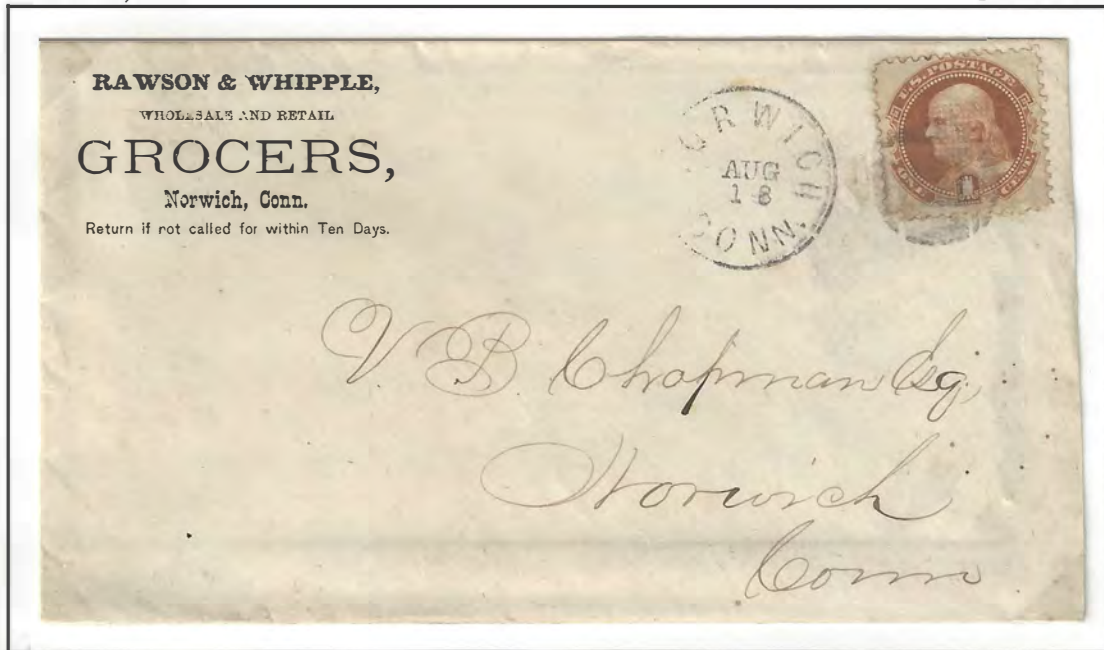 RAWSON & WHIPPLE,
WHOLESALE AND RETAIL
GROCERS,
Norwich, Conn.
Return if not called for within Ten Days.
NORWICH
AUG
18
CONN.
U.S. POSTAGE
ONE CENT
1
V. B. Chapman Esq,
Norwich
Conn